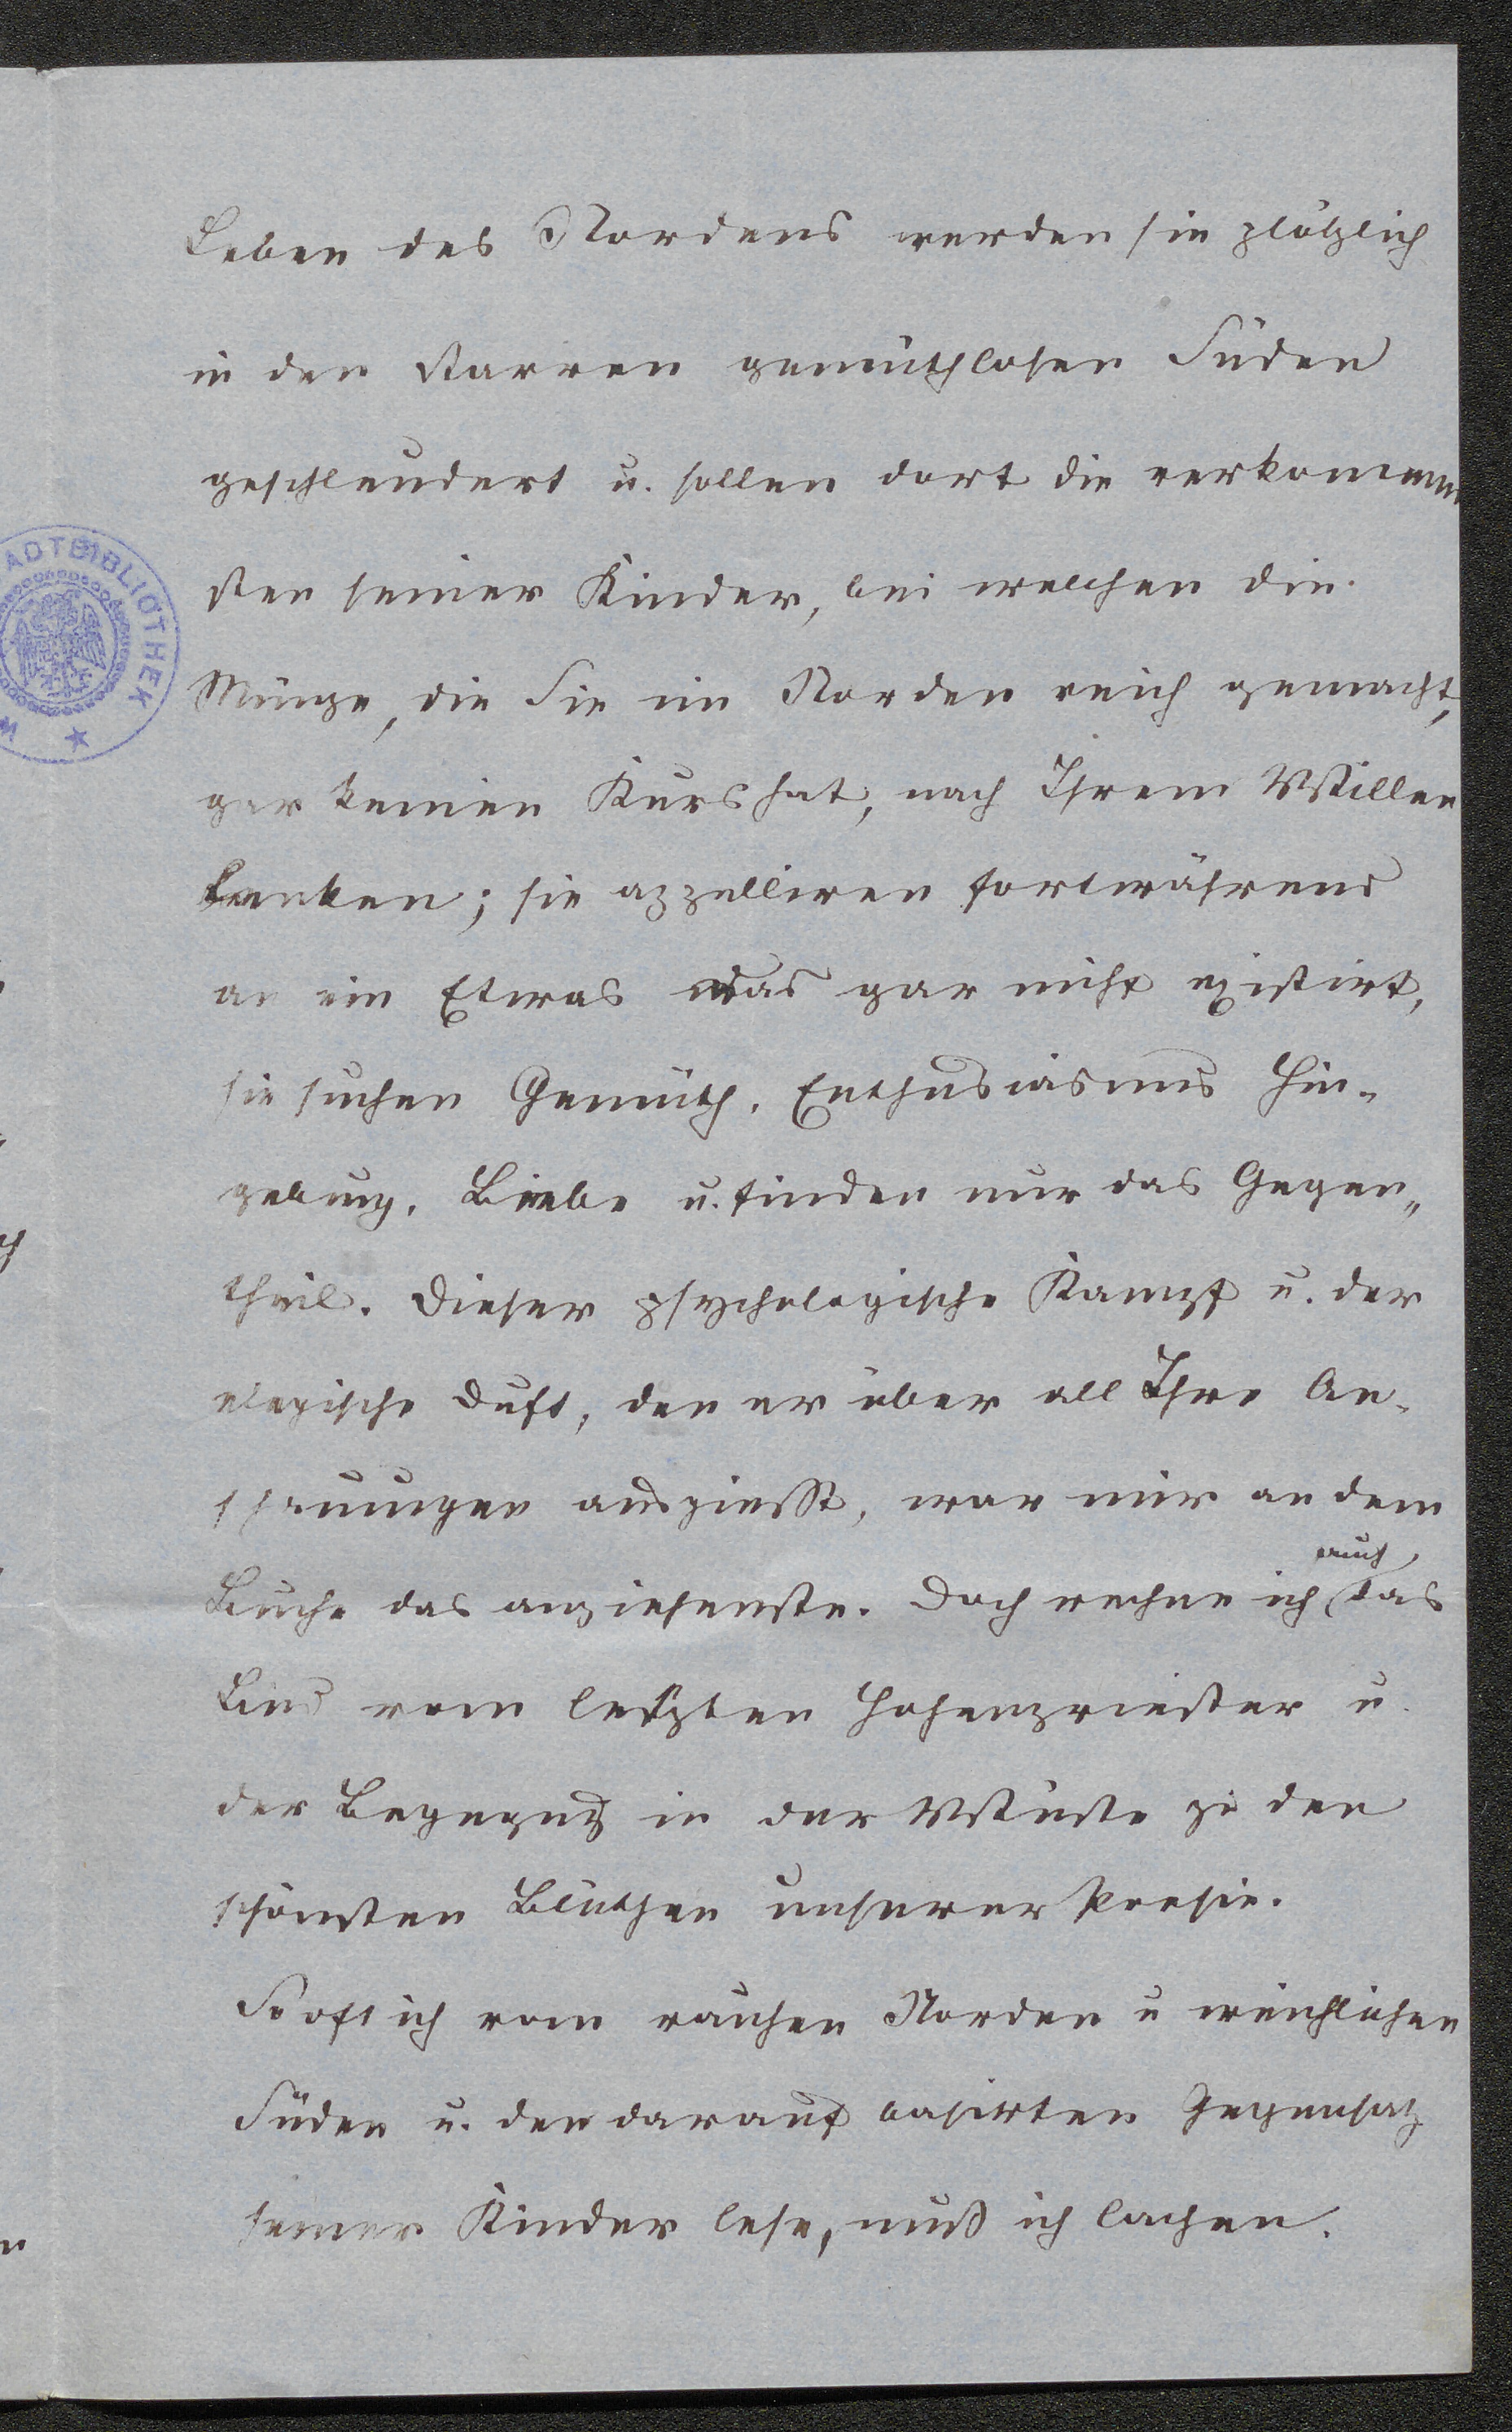 Leben des Nordens werden sie plötzlich
in den starren gemüthlosen Süden
geschleudert u. sollen dort die verkommen
sten seiner Kinder, bei welchen die
Münze, die Sie im Norden reich gemacht,
gar keinen Kurs hat, nach Ihrem Willen
lenken; sie appelliren fortwährend
an ein Etwas das gar nicht existirt,
sie suchen Gemüth, Enthusiasmus Hin-
gebung, Liebe u. finden nur das Gegen„
theil. Dieser psychologische Kampf u. der
elegische Duft, den er über all Ihre An-
schauungen ausgiesst, war mir an dem
auch
Buche das anziehenste. Doch rechne ich das
Lied vom letzten Hohenpriester u.
der Begegng in der Wüste zu den
schönsten Blüthen unserer Poesie.
So oft ich vom rauhen Norden u weichlichen
Süden u. den darauf basirten Gegensatz
seiner Kinder lese, muß ich lachen.
ADTBIBLIOTHEK
W